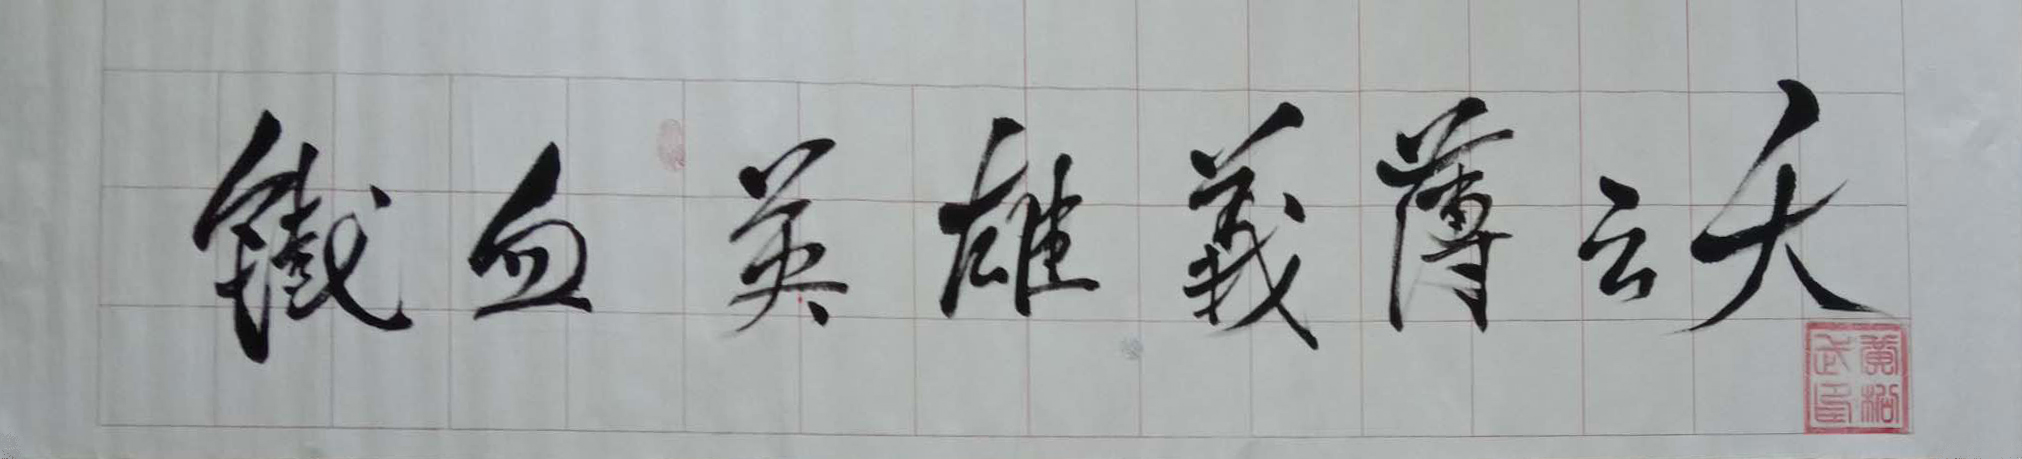 鐵血英雄義薄云天